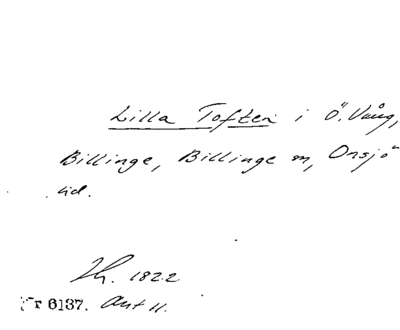 Lilla Toften i Ö. Vång,
Billinge, Billinge sn, Onsjö
hd.
Th. 1822
Nr 6137. Ant 11.